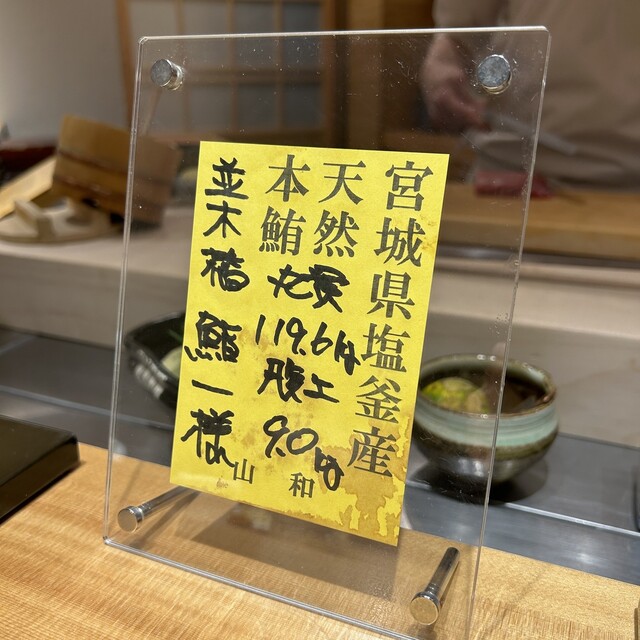 宮城県塩釜産
天然
本鮪
119.6kg
腹上
9.0kg
並木橋
鮨一様
山和